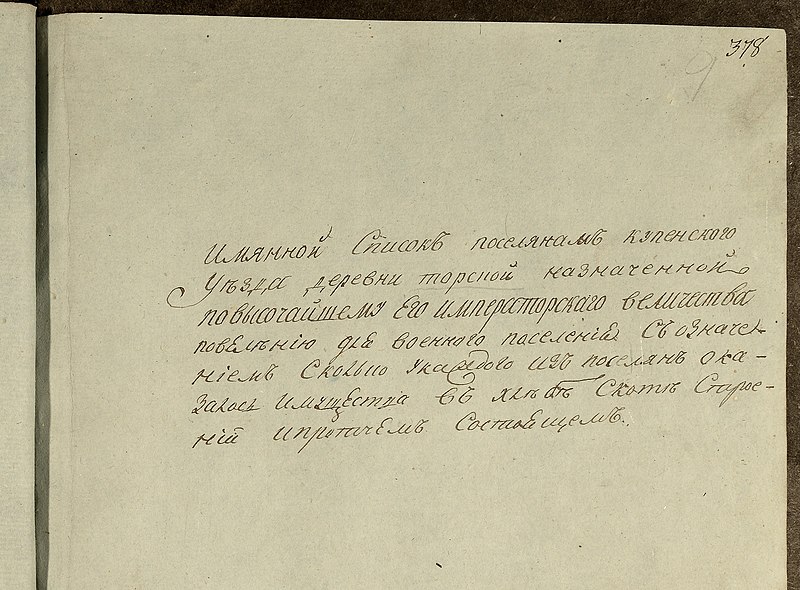 378
Имянной Списокъ поселянамъ купенского
Уѣзда деревни торской назначенной
по высочайшему Его императорскаго величества
повелѣнію для военного поселенія съ означе-
ніемъ сколько у каждого изъ поселян ока-
залось имущества въ хлѣбѣ скотѣ строе-
ній и протчемъ состоящемъ.